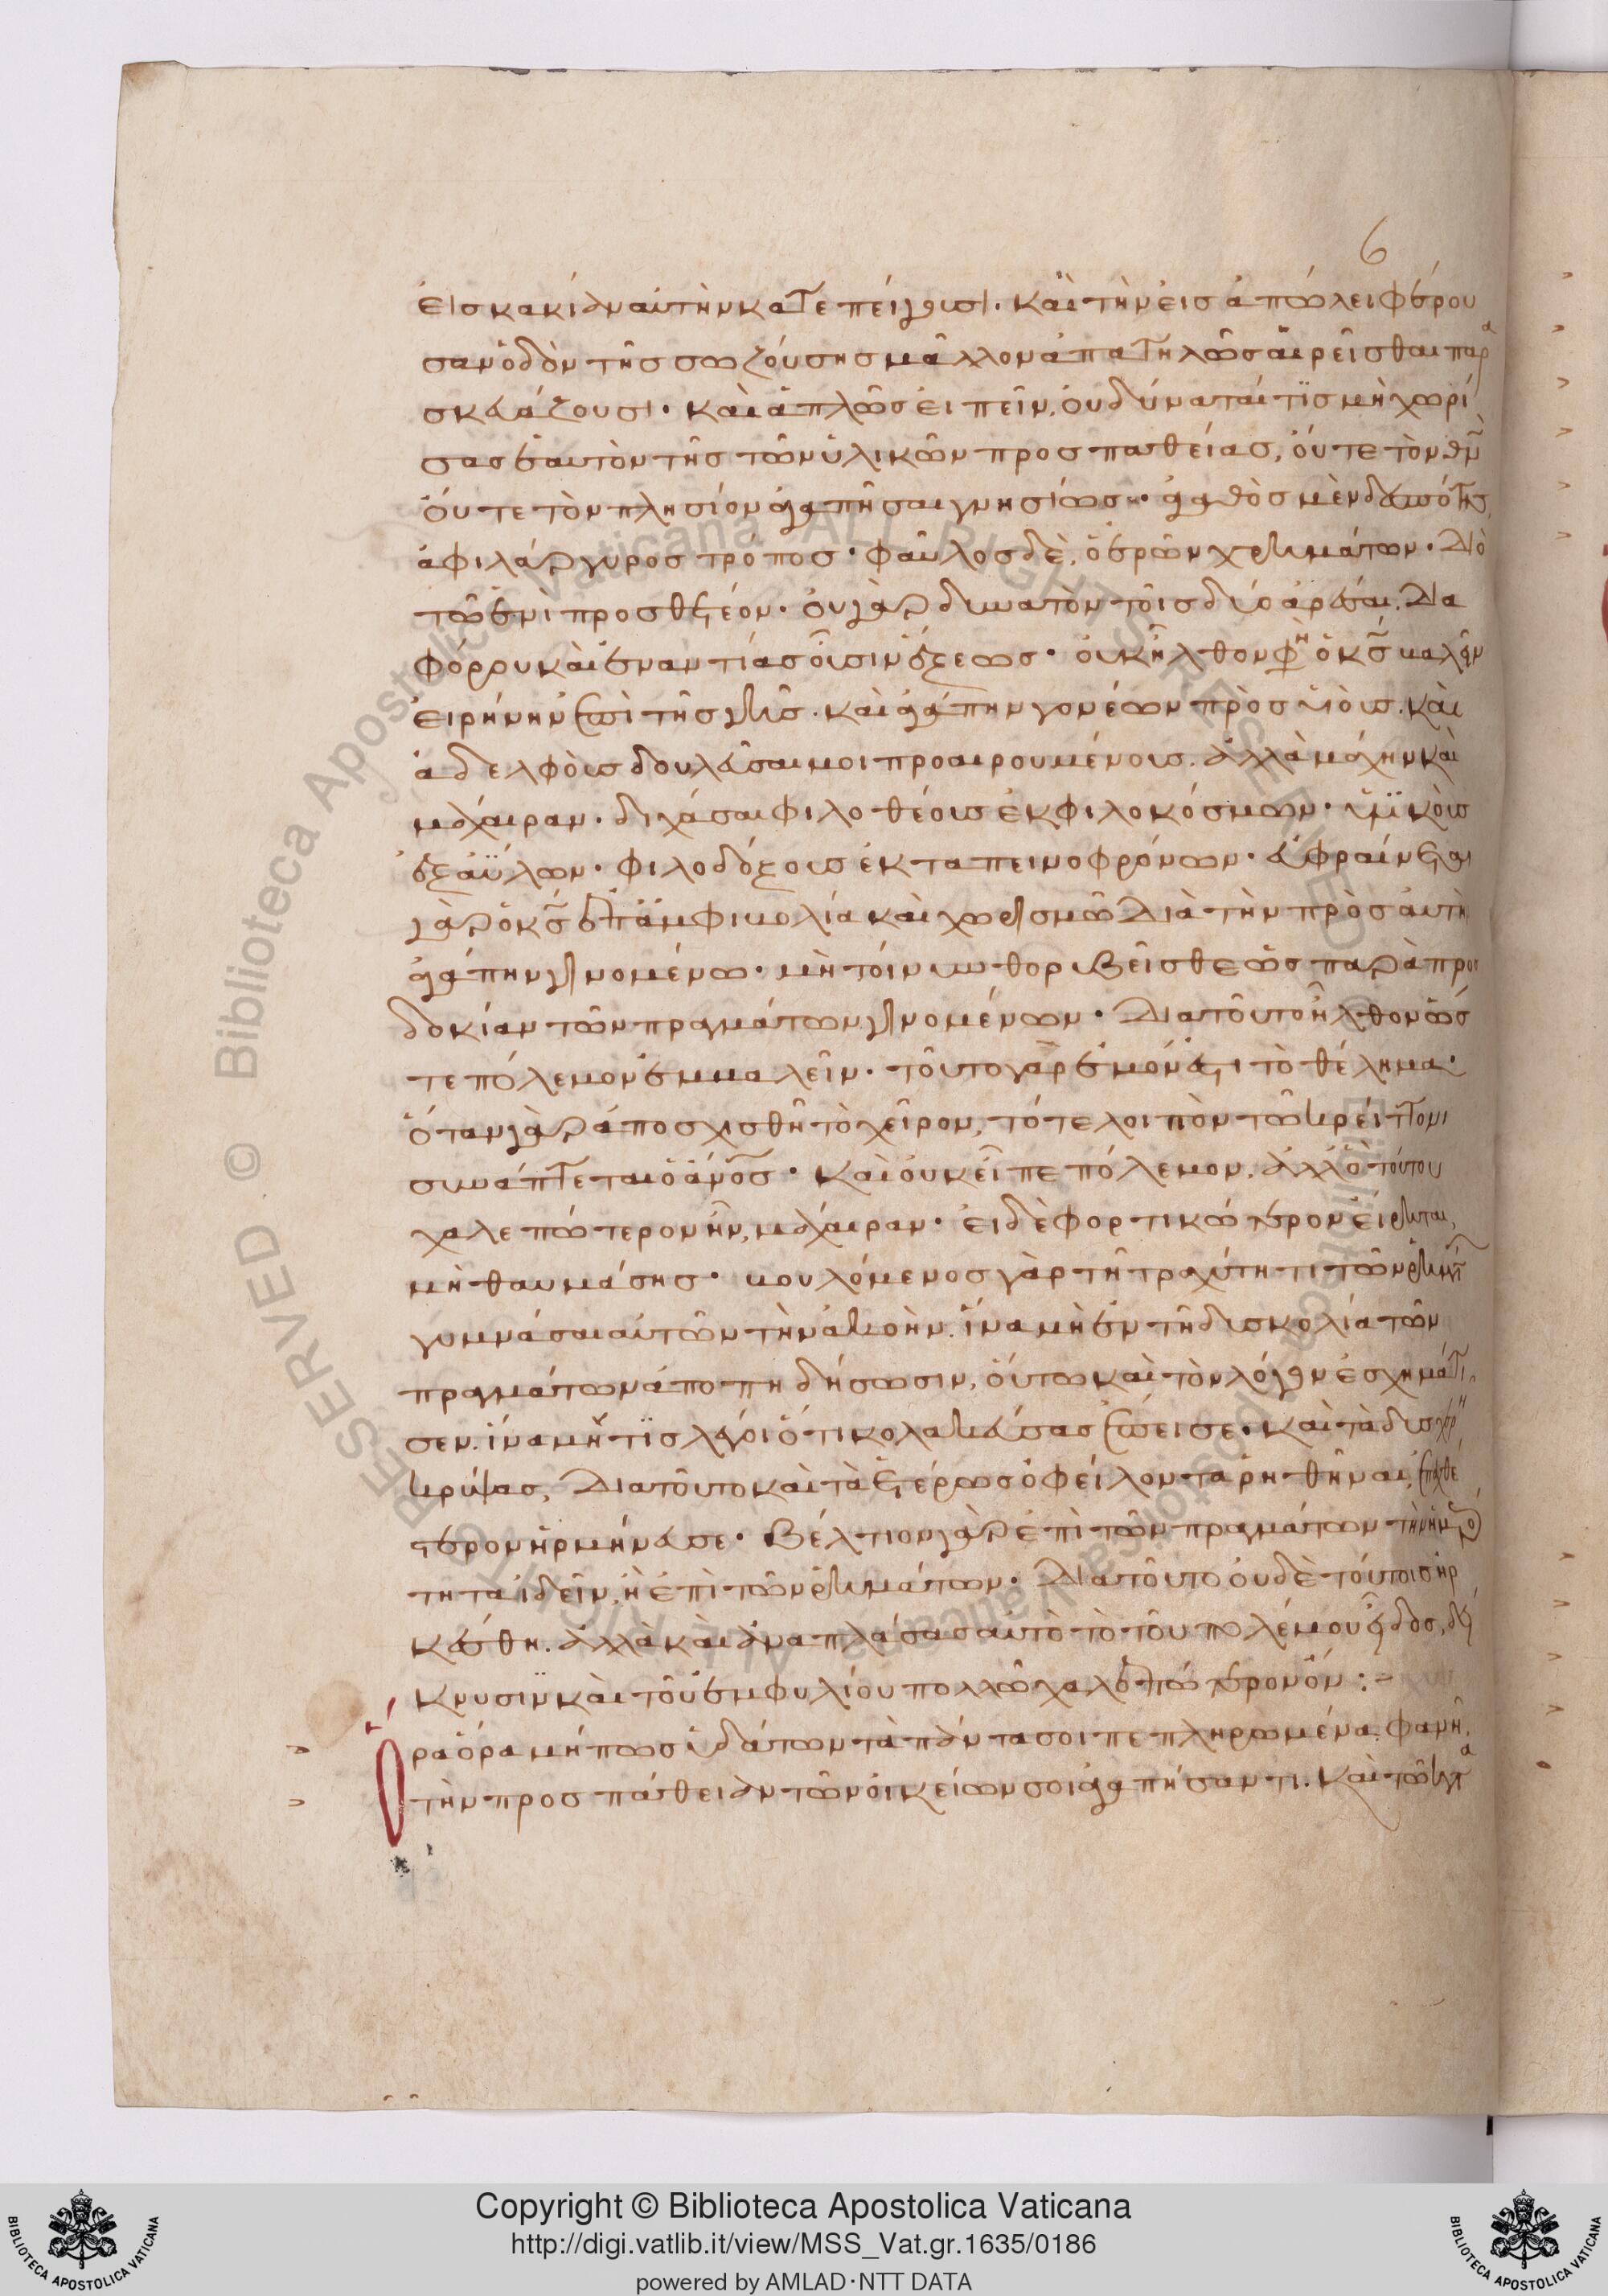 6
εἰς κακίαν αὐτὴν κατεπείγουσι. καὶ τὴν εἰς ἀπώλει φέρου
σαν ὁδὸν τῆς σωζούσης μᾶλλον ἀπατηλῶς αἱρεῖσθαι παρ
σκευάζουσι. καὶ ἁπλῶς εἰπεῖν, οὐ δύναταί τϊς μὴ χωρί
σας ἑαυτὸν τῆς τῶν ὑλικῶν προσπαθείας, οὔτε τὸν θν
οὔτε τὸν πλησίον ἀγαπῆσαι γνησίως. ἀγαθὸς μὲν δεσπότης,
ἀφιλάργυρος τρόπος. φαῦλος δὲ, ὁ ἐρῶν χρημάτων. Διὸ
τῶ ἑνὶ προσθετέον. οὐ γὰρ δυνατὸν τοῖς δυσὶν ἀρέσαι. Δια
φόρου καὶ ἐναντίας οὖσιν ἕξεως. οὐκ ἦλθον φη ὁ κς βαλεῖν
εἰρήνην ἐπὶ τῆς γῆς. καὶ ἀγάπην γονέων πρὸς υἱοὺς. καὶ
ἀδελφοὺς δουλεῦσαί μοι προαιρουμένους. ἀλλὰ μάχην καὶ
μάχαιραν. διχάσαι φιλοθέους ἐκ φιλοκόσμων. ὑλϊκοὺς
ἐξ ἀΰλων. φιλοδόξους ἐκ ταπεινοφρόνων. εὐφραίνεται
γὰρ ὁ κς ἐπ ἀμφιβολία καὶ χωρισμῶ Διὰ τὴν πρὸς αὐτὴ
ἀγάπην γινομένω. μὴ τοίνυν θορυβεῖσθε ὡς παρὰ προσ
δοκίαν τῶν πραγμάτων γινομένων. Διατοῦτο ἦλθον ὥς
τε πόλεμον ἐμβαλεῖν. τοῦτο γὰρ ἐμόν ἐστι τὸ θέλημα.
ὅταν γὰρ ἀποσχισθῆ τὸ χεῖρον, τότε λοιπὸν τῶ κρείττονι
συνάπτεται ὁ ανος. καὶ οὐκ εἶπε πόλεμον. ἀλλ ὃ τούτου
χαλεπώτερον ἦν, μάχαιραν. εἰ δὲ φορτικώτερον εἴρηται,
μὴ θαυμάσης. βουλόμενος γὰρ τῆ τραχύτητι τῶν ῥημάτ
γυμνάσαι αὐτῶν τὴν ἀκοὴν. ἵνα μὴ ἐν τῆ δυσκολία τῶν
πραγμάτων ἀποπηδήσωσιν, οὕτω καὶ τὸν λόγον ἐσχημάτι
σεν. ἵνα μή τϊς λέγοι ὅτι κολακεύσας ἔπεισε. καὶ τὰ δυσχερῆ
κρύψας, Διατοῦτο καὶ τὰ ἑτέρως ὀφείλοντα ῥηθῆναι,
τερον ἡρμήνευσε. βέλτιον γὰρ ἐπὶ τῶν πραγμάτων τὴν ἡμερό
τητα ἰδεῖν, ἢ ἐπὶ τῶν ῥημάτων. Διατοῦτο οὐδὲ τούτοις ἠρ
κέσθη. ἀλλὰ καὶ ἀναπλάσας αὐτὸ τὸ τοῦ πολέμου εἶδος, δεί
κνυσιν καὶ τοῦ ἐμφυλίου πολλῶ χαλεπώτερον ὄν:
ρα ὅρα μή πως ὑδάτων τὰ πάντα σοι πεπληρωμένα φανῆ,
τὴν προσπάθειαν τῶν οἰκείων σοι ἀγαπήσαντι. καὶ τῶ κατα
Copyright © Biblioteca Apostolica Vaticana
http://digi.vatlib.it/view/MSS_Vat.gr.1635/0186
powered by AMLAD·NTT DATA
BIBLIOTECA APOSTOLICA VATICANA
BIBLIOTECA APOSTOLICA VATICANA